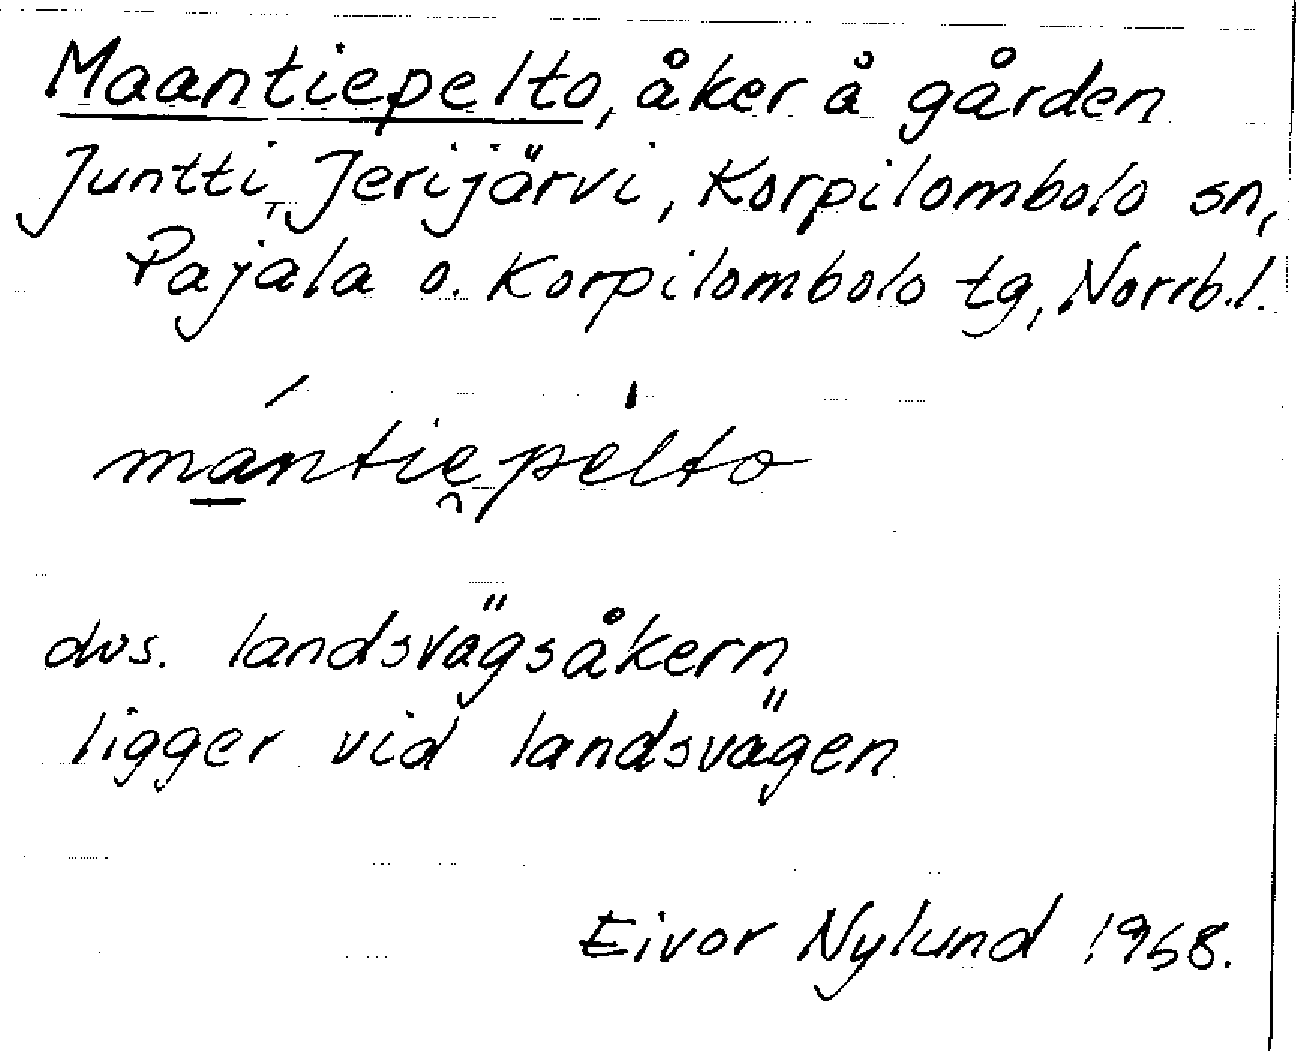 Maantiepelto, åker å gården
Juntti, Jerijärvi, Korpilombolo sn,
Pajala o. Korpilombolo tg, Norrb.l.
mántie̯pèlto
dvs. landsvägsåkern
ligger vid landsvägen
Eivor Nylund 1968.